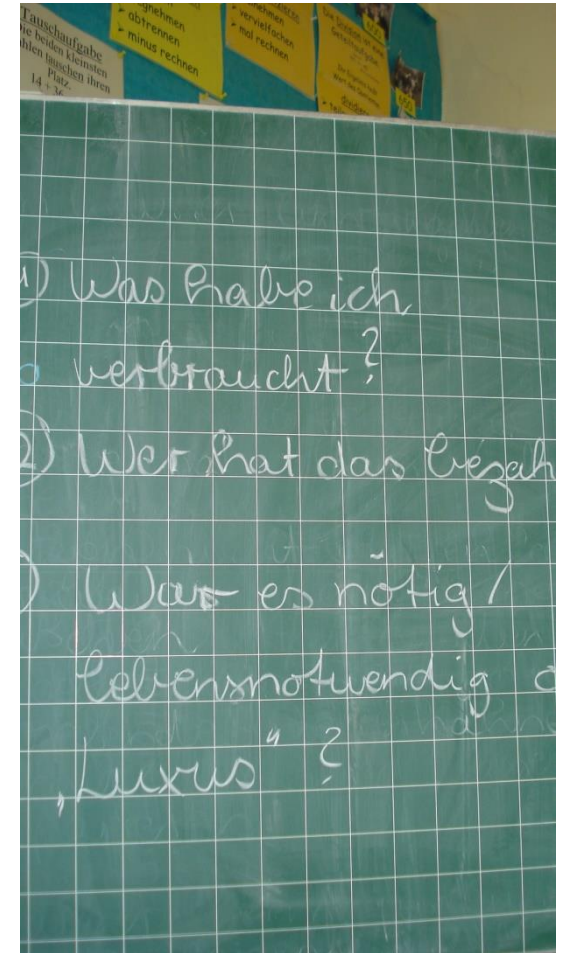 Tauschaufgabe
ie beiden kleinsten
hlen tauschen ihren
Platz.
14 + 36
gnehmen
➤ abtrennen
➤ minus rechnen
nehmen
➤ vervielfachen
➤ mal rechnen
600
600
1) Was habe ich
verbraucht?
2) Wer hat das bezah
) War es nötig /
lebensnotwendig o
„Luxus“?